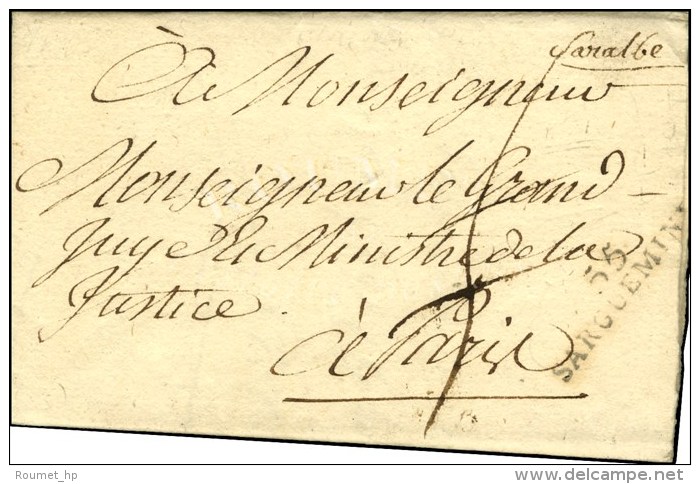 Saralbe
À Monseigneur
Monseigneur le Grand
Juge Et Ministre de la
Justice.
à Paris
55
SARGUEMIN
Roumet_hp
delcampe.net